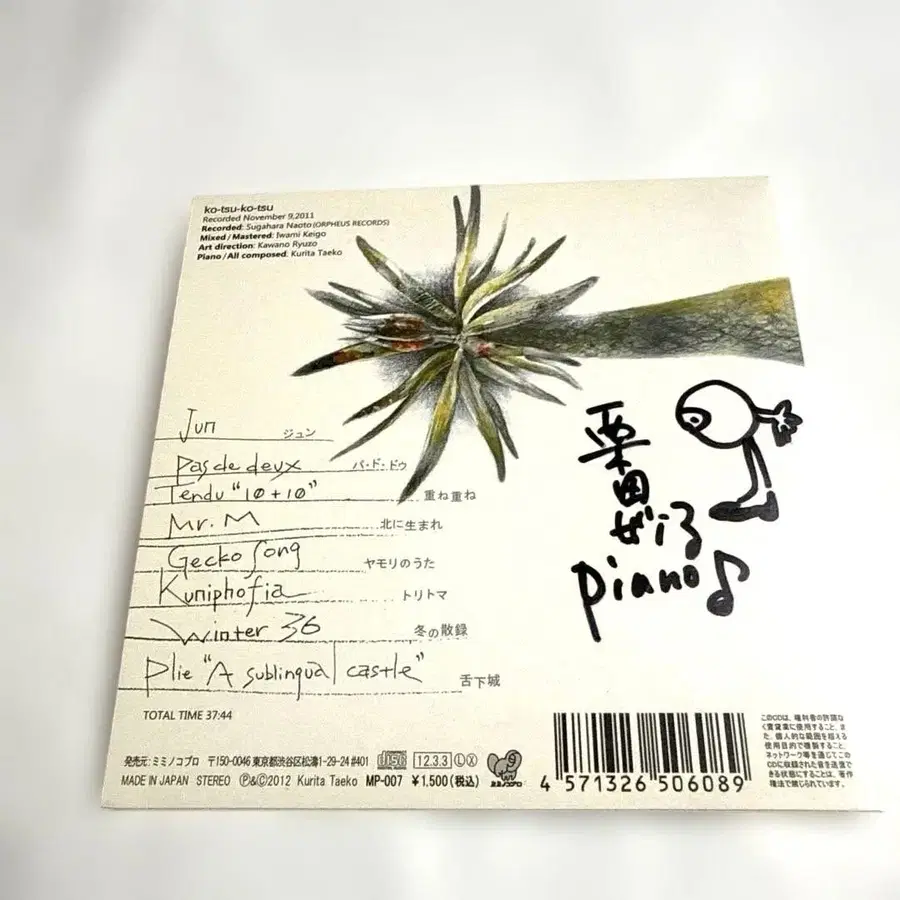 ko-tsu-ko-tsu
Recorded November 9,2011
Recorded: Sugahara Naoto (ORPHEUS RECORDS)
Mixed / Mastered: Iwami Keigo
Art direction: Kawano Ryuzo
Piano / All composed: Kurita Taeko
Jun ジュン
Pas de deux パ・ド・ドゥ
Tendu "10+10" 重ね重ね
Mr. M 北に生まれ
Gecko Song ヤモリのうた
Kuniphofia トリトマ
Winter 36 冬の散録
Plie "A sublingual castle" 舌下城
TOTAL TIME 37:44
栗田
piano♪
発売元: ミミノコプロ 〒150-0046 東京都渋谷区松濤1-29-24 #401 DISC 12.3.3 L X
MADE IN JAPAN STEREO Ⓟ&©2012 Kurita Taeko MP-007 ¥1,500(税込)
4 571326 506089
このCDは、権利者の許諾な
く賃貸業に使用すること、ま
た、個人的な範囲を超える
使用目的で複製すること、
ネットワーク等を通じてこの
CDに収録された音を送信で
きる状態にすることは、著作
権法で禁じられています。